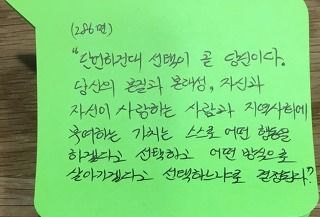 (286면)
"단언하건대 선택이 곧 당신이다.
당신의 본질과 본래성, 자신과
자신이 사랑하는 사람과 지역사회에
욱여하는 가치는 스스로 어떤 행동을
하겠다고 선택하고 어떤 방식으로
살아가겠다고 선택하느냐로 결정된다."